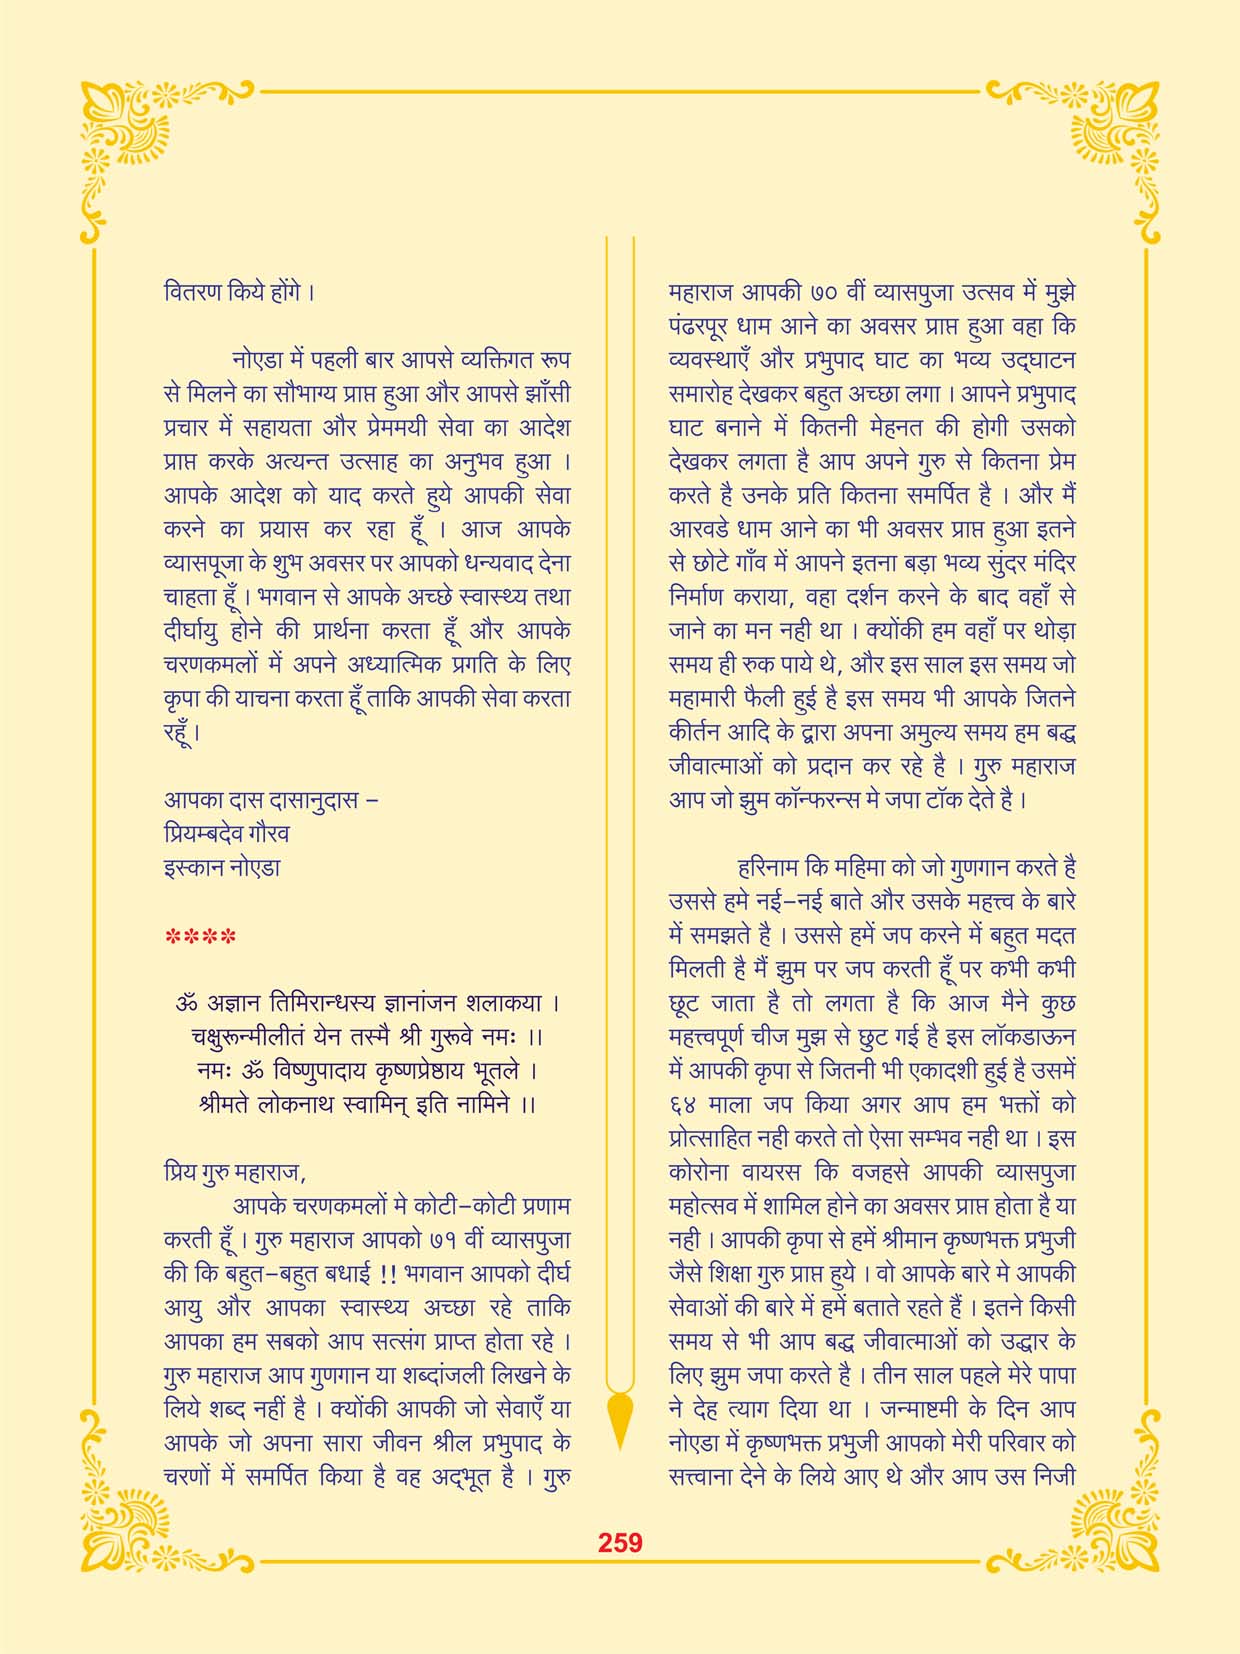 वितरण किये होंगे ।
नोएडा में पहली बार आपसे व्यक्तिगत रूप
से मिलने का सौभाग्य प्राप्त हुआ और आपसे झाँसी
प्रचार में सहायता और प्रेममयी सेवा का आदेश
प्राप्त करके अत्यन्त उत्साह का अनुभव हुआ ।
आपके आदेश को याद करते हुये आपकी सेवा
करने का प्रयास कर रहा हूँ । आज आपके
व्यासपूजा के शुभ अवसर पर आपको धन्यवाद देना
चाहता हूँ । भगवान से आपके अच्छे स्वास्थ्य तथा
दीर्घायु होने की प्रार्थना करता हूँ और आपके
चरणकमलों में अपने अध्यात्मिक प्रगति के लिए
कृपा की याचना करता हूँ ताकि आपकी सेवा करता
रहूँ ।
आपका दास दासानुदास –
प्रियम्बदेव गौरव
इस्कान नोएडा
****
ॐ अज्ञान तिमिरान्धस्य ज्ञानांजन शलाकया ।
चक्षुरून्मीलीतं येन तस्मै श्री गुरूवे नमः ।।
नमः ॐ विष्णुपादाय कृष्णप्रेष्ठाय भूतले ।
श्रीमते लोकनाथ स्वामिन् इति नामिने ।।
प्रिय गुरु महाराज,
आपके चरणकमलों मे कोटी–कोटी प्रणाम
करती हूँ । गुरु महाराज आपको ७१ वीं व्यासपुजा
की कि बहुत–बहुत बधाई !! भगवान आपको दीर्घ
आयु और आपका स्वास्थ्य अच्छा रहे ताकि
आपका हम सबको आप सत्संग प्राप्त होता रहे ।
गुरु महाराज आप गुणगान या शब्दांजली लिखने के
लिये शब्द नहीं है । क्योंकी आपकी जो सेवाएँ या
आपके जो अपना सारा जीवन श्रील प्रभुपाद के
चरणों में समर्पित किया है वह अद्भूत है । गुरु
महाराज आपकी ७० वीं व्यासपुजा उत्सव में मुझे
पंढरपूर धाम आने का अवसर प्राप्त हुआ वहा कि
व्यवस्थाएँ और प्रभुपाद घाट का भव्य उद्घाटन
समारोह देखकर बहुत अच्छा लगा । आपने प्रभुपाद
घाट बनाने में कितनी मेहनत की होगी उसको
देखकर लगता है आप अपने गुरु से कितना प्रेम
करते है उनके प्रति कितना समर्पित है । और मैं
आरवडे धाम आने का भी अवसर प्राप्त हुआ इतने
से छोटे गाँव में आपने इतना बड़ा भव्य सुंदर मंदिर
निर्माण कराया, वहा दर्शन करने के बाद वहाँ से
जाने का मन नही था । क्योंकी हम वहाँ पर थोड़ा
समय ही रुक पाये थे, और इस साल इस समय जो
महामारी फैली हुई है इस समय भी आपके जितने
कीर्तन आदि के द्वारा अपना अमुल्य समय हम बद्ध
जीवात्माओं को प्रदान कर रहे है । गुरु महाराज
आप जो झुम कॉन्फरन्स मे जपा टॉक देते है ।
हरिनाम कि महिमा को जो गुणगान करते है
उससे हमे नई–नई बाते और उसके महत्त्व के बारे
में समझते है । उससे हमें जप करने में बहुत मदत
मिलती है मैं झुम पर जप करती हूँ पर कभी कभी
छूट जाता है तो लगता है कि आज मैने कुछ
महत्त्वपूर्ण चीज मुझ से छुट गई है इस लॉकडाऊन
में आपकी कृपा से जितनी भी एकादशी हुई है उसमें
६४ माला जप किया अगर आप हम भक्तों को
प्रोत्साहित नही करते तो ऐसा सम्भव नही था । इस
कोरोना वायरस कि वजहसे आपकी व्यासपुजा
महोत्सव में शामिल होने का अवसर प्राप्त होता है या
नही । आपकी कृपा से हमें श्रीमान कृष्णभक्त प्रभुजी
जैसे शिक्षा गुरु प्राप्त हुये । वो आपके बारे मे आपकी
सेवाओं की बारे में हमें बताते रहते हैं । इतने किसी
समय से भी आप बद्ध जीवात्माओं को उद्धार के
लिए झुम जपा करते है । तीन साल पहले मेरे पापा
ने देह त्याग दिया था । जन्माष्टमी के दिन आप
नोएडा में कृष्णभक्त प्रभुजी आपको मेरी परिवार को
सत्त्वाना देने के लिये आए थे और आप उस निजी
259